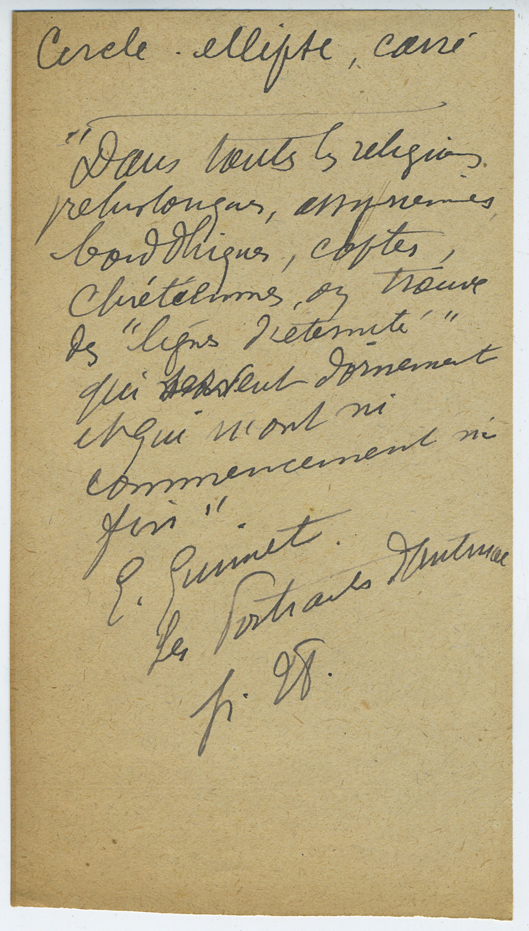 Cercle - ellipse, carré
"Dans toutes les religions
préhistoriques, assyriennes,
bouddhiques, coptes,
chrétiennes, on trouve
des "lignes d'éternité"
qui servent d'ornement
et qui n'ont ni
commencement ni
fin"
E. Guimet.
Les Portraits d'Antinoé
p. 28.